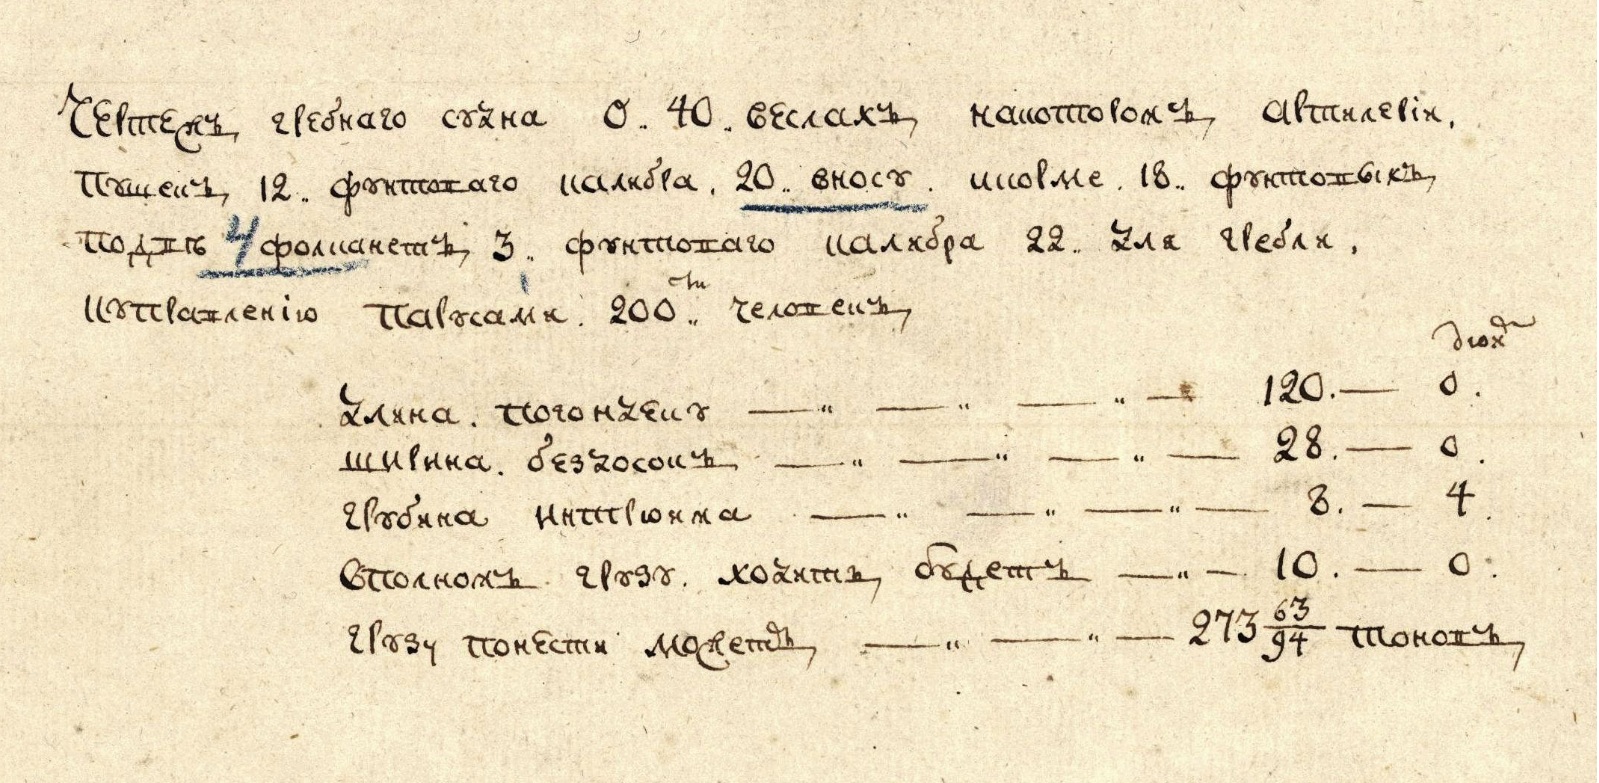 Чертежъ гребнаго судна о.. 40.. веслахъ, накоторомъ, Артилерiи.
Пушекъ, 12.. фунтоваго калибра. 20.. вносу. икорме. 18.. фунтовыхъ
подвѣ 4 фолканетъ, 3.. фунтоваго калибра 22.. для гребли,
куправленiю парусами. 200.. ти человекъ,
дюй
длина. погондеку —„ —„ —„ — 120. — 0.
ширина. бездосокъ —„ —„ —„ — 28. — 0.
глубина интрюима —„ —„ —„ — 8. — 4.
Вполномъ грузу. ходить, будетъ —„ — 10. — 0.
грузу понести можетъ, —„ —„ — 273 63/94 тоновъ,